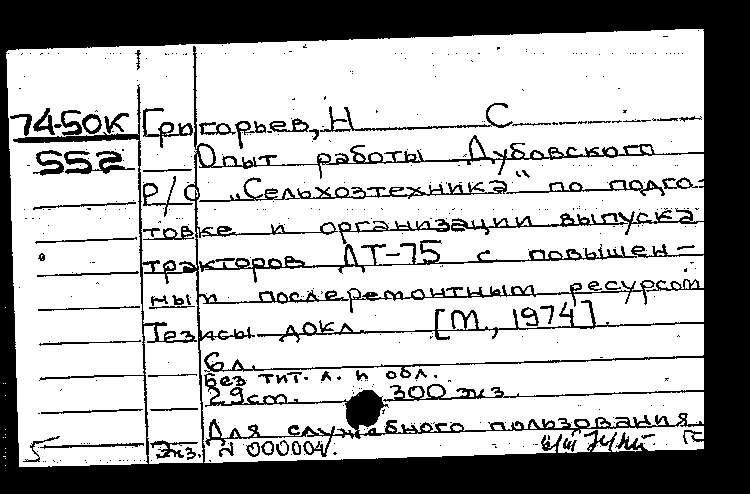 74-50К Григорьев, Н С
552 Опыт работы Дубовского
Р/О "Сельхозтехника" по подго-
товке и организации выпуска
тракторов ДТ-75 с повышен-
ным послеремонтным ресурсом
Тезисы докл. [М., 1974].
6 л.
Без тит. л. и обл.
29 cm. 300 экз.
Для служебного пользования.
Экз. N 000004.